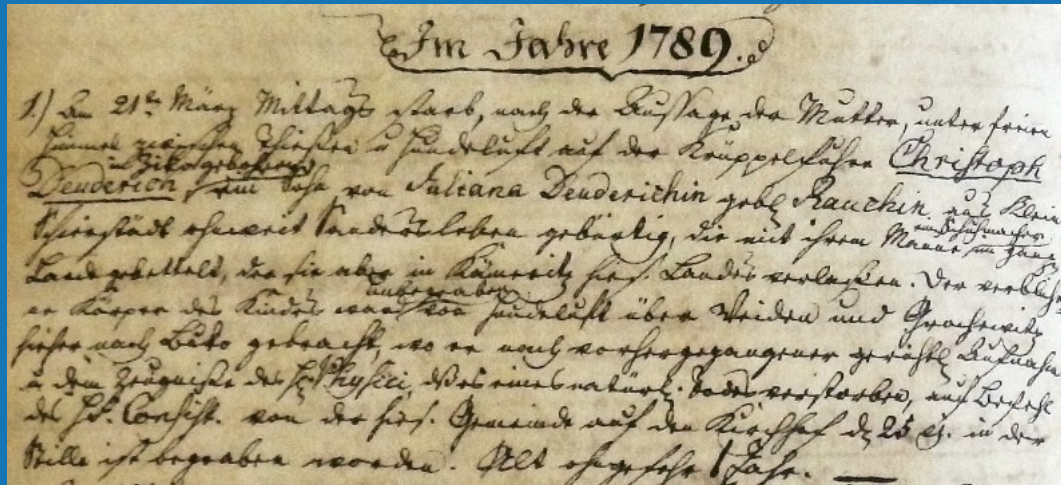 Im Jahre 1789.
1.) Am 21ten März Mittags starb, nach der Aussage der Mutter, unter freien
Himmel zwischen Thießen u Hundeluft auf der Krüppelfuhre Christoph
in Zikogebohren
Deuderich, ein Sohn von Juliana Deuderichin geb. Rauchin, aus Klein
Schierstädt ohnweit Sandersleben gebürtig, die mit ihrem Manne im ganzen
ein Schuhmacher
Lande gebettelt, der sie aber in Kämeritz hies. Landes verlaßen. Der verblich-
unbegraben
ne Körper des Kindes ward von Hundeluft über Weiden und Grochewitz
hieher nach Buko gebracht, wo er nach vorhergegangener gerichtl Aufnahme
u dem Zeugniße des H Physici, dß es eines natürl. Todes verstorben, auf Befehl
des H. Consist. von der hies. Gemeinde auf den Kirchhof d 25 ej. in der
Stille ist begraben worden. Alt ohngefehr 1 Jahr.